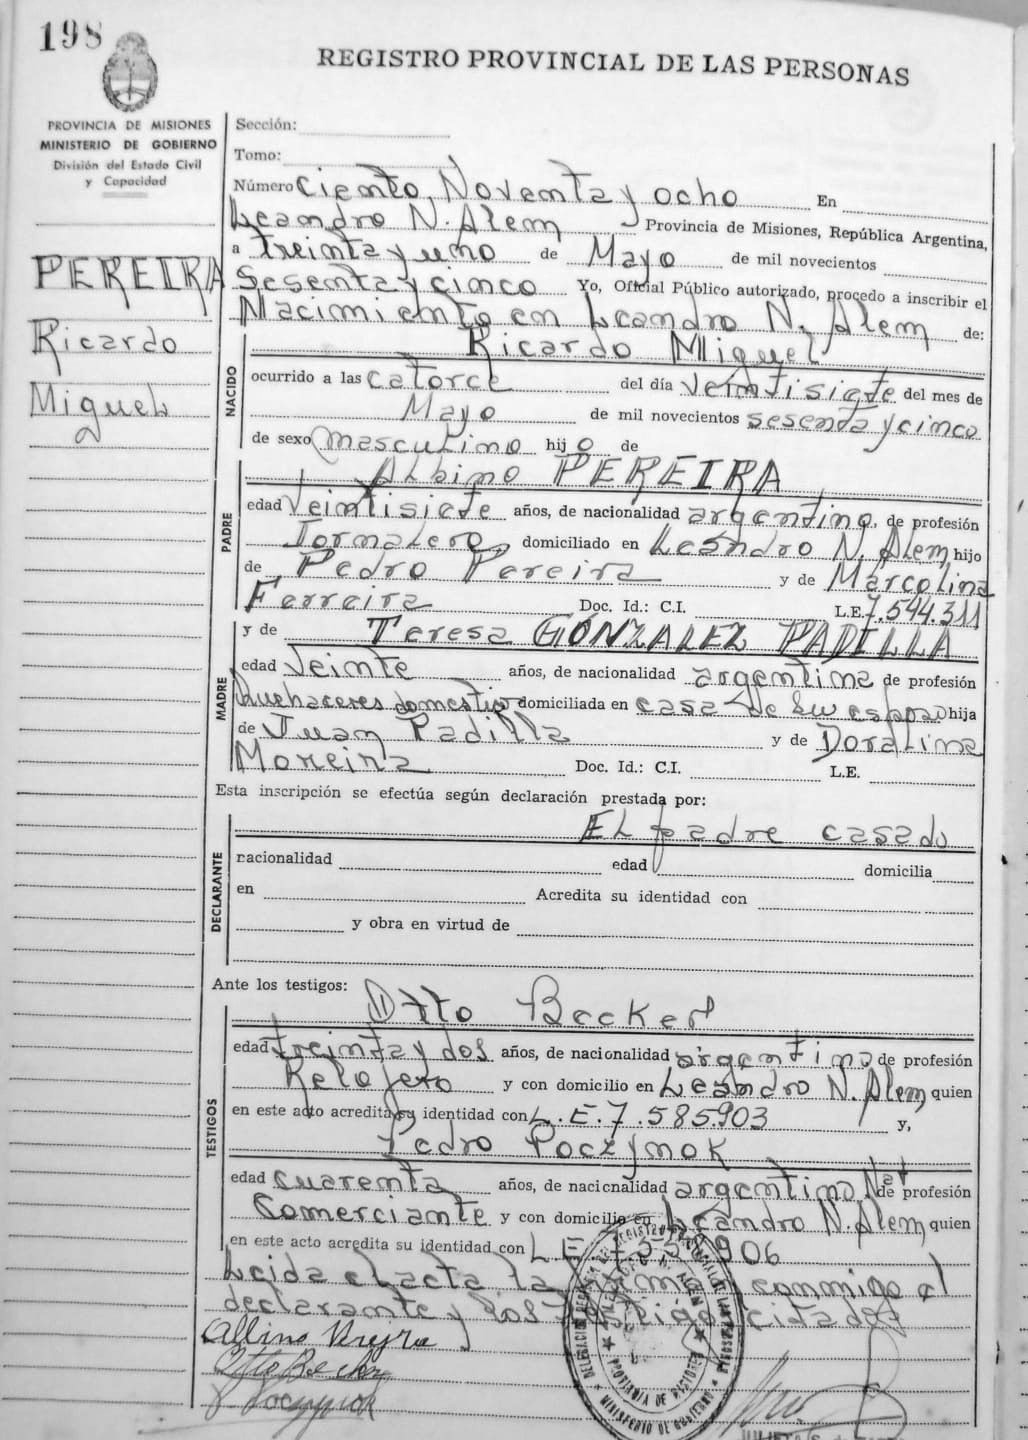 198
REGISTRO PROVINCIAL DE LAS PERSONAS
PROVINCIA DE MISIONES
MINISTERIO DE GOBIERNO
División del Estado Civil
y Capacidad
PEREIRA
Ricardo
Miguel
Sección:
Tomo:
Número Ciento, Noventa y ocho En
Leandro N. Alem Provincia de Misiones, República Argentina,
a treinta y uno de Mayo de mil novecientos
Sesenta y cinco Yo, Oficial Público autorizado, procedo a inscribir el
Nacimiento en Leandro N. Alem de:
Ricardo Miguel
NACIDO
ocurrido a las catorce del día veintisiete del mes de
Mayo de mil novecientos sesenta y cinco
de sexo masculino hijo de
Albino PEREIRA
PADRE
edad veintisiete años, de nacionalidad argentino, de profesión
Jornalero, domiciliado en Leandro N. Alem hijo
de Pedro Pereira y de Marcolina
Ferreira Doc. Id.: C.I. L.E. 7.544.311
MADRE
y de Teresa GONZALEZ PADILLA
edad veinte años, de nacionalidad argentina de profesión
Quehaceres domestico domiciliada en casa de su esposo hija
de Juan Padilla y de Doralina
Moreira Doc. Id.: C.I. L.E.
Esta inscripción se efectúa según declaración prestada por:
El padre casado
DECLARANTE
nacionalidad edad domicilia
en Acredita su identidad con
y obra en virtud de
Ante los testigos:
Otto Becker
TESTIGOS
edad treinta y dos años, de nacionalidad argentino de profesión
Relojero y con domicilio en Leandro N. Alem quien
en este acto acredita su identidad con L.E. 7.585.903 y,
Pedro Poczynok
edad cuarenta años, de nacicnalidad argentino Nat de profesión
Comerciante y con domicilio en Leandro N. Alem quien
en este acto acredita su identidad con L E 906
Leida el acta la conmigo el
declarante y los testigo citados
Albino Pereyra
Otto Becker
P Poczynok
PROVINCIA DE MISIONES
MINISTERIO DE GOBIERNO